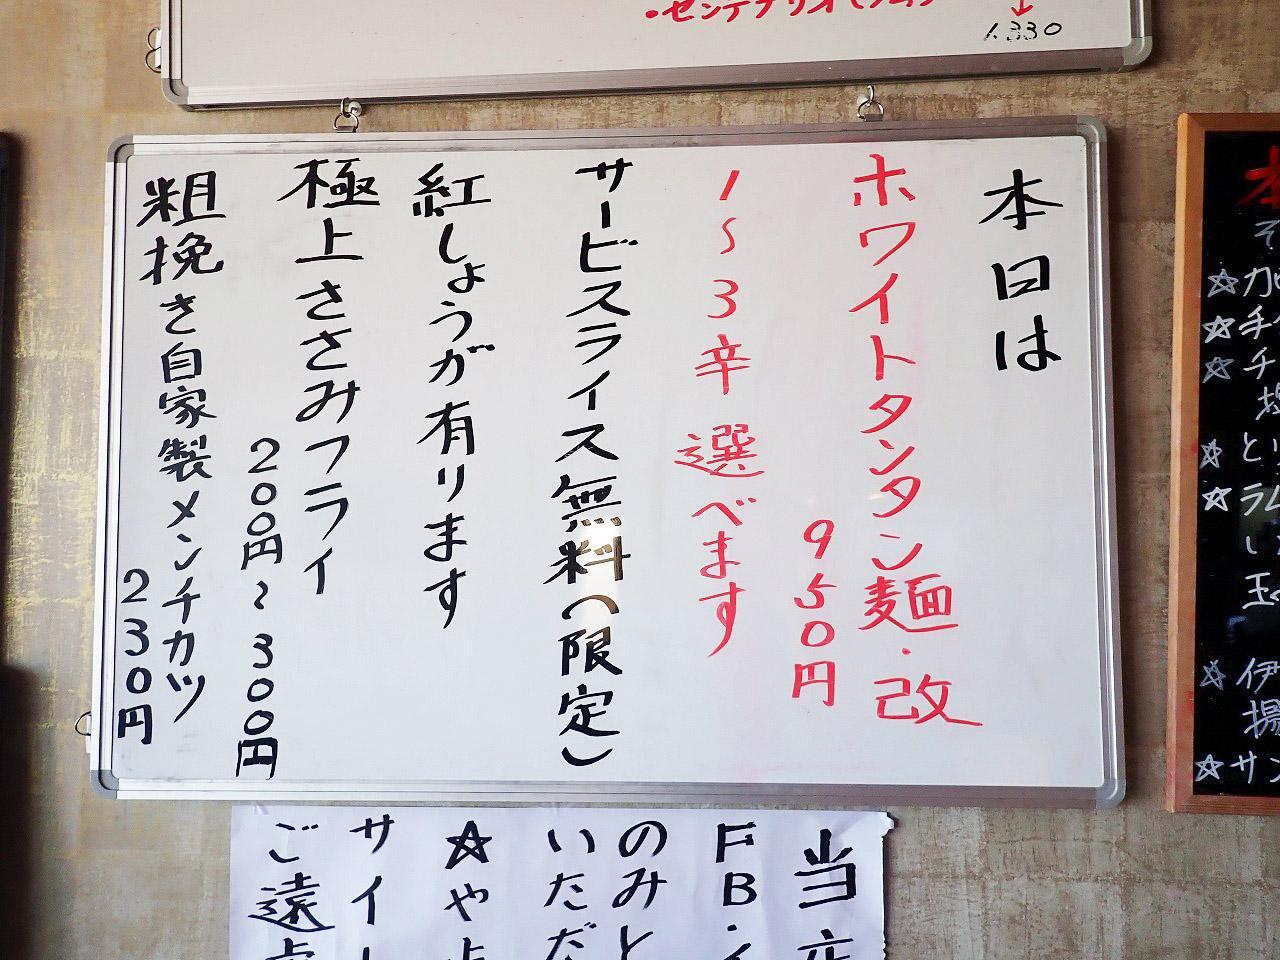 1,330
本日は
ホワイトタンタン麺・改
950円
1〜3辛選べます
サービスライス無料(限定)
紅しょうが有ります
極上ささみフライ
200円〜300円
粗挽き自家製メンチカツ
230円
当
FB・
のみと
いただ
☆や
サイ
ご遠
☆
☆
☆
☆と
☆ラム
☆伊
揚
☆サン